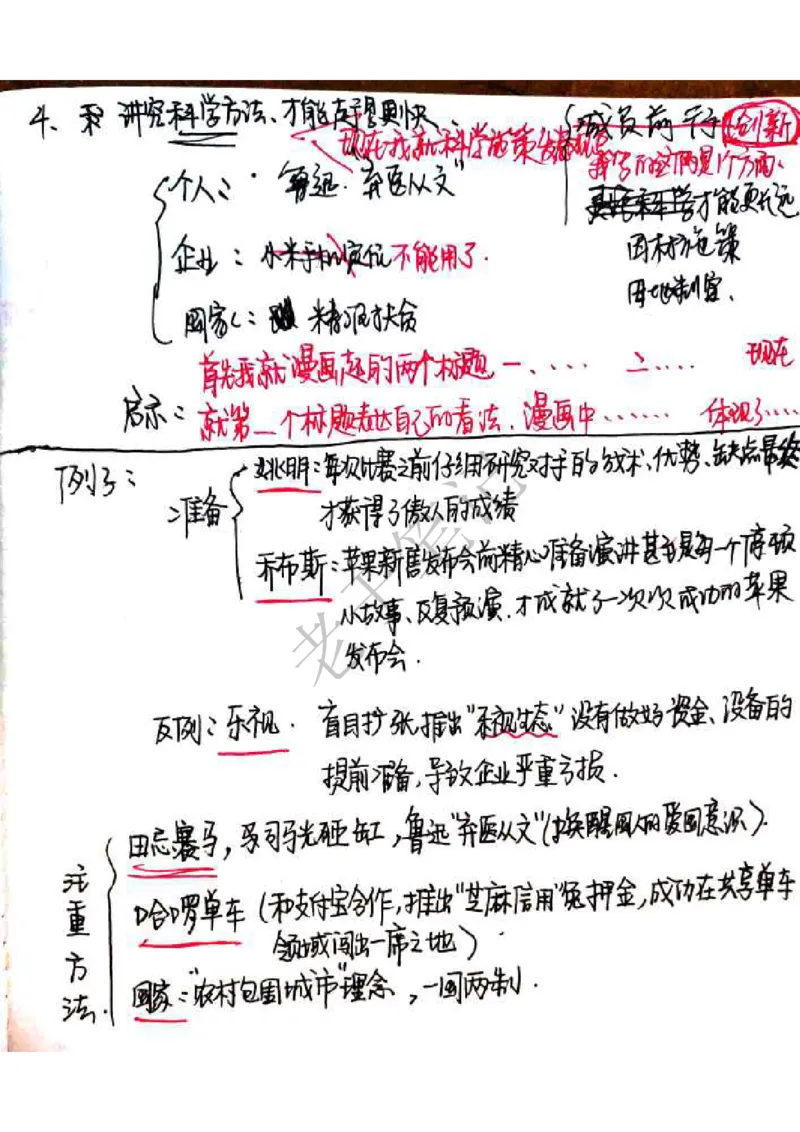 4、讲究科学方法、才能走得更快、
负重前行 创新
现在我就科学施策
个人：“鲁迅·弃医从文”
才能更长远
企业：小米手机定位 不能用了.
因材施策
因地制宜.
国家：精准扶贫
首先我就漫画起的两个标题 一、.... 二、.... 现在
启示：就第一个标题表达自己的看法. 漫画中...... 体现了.....
例子：
准备
姚明：每次比赛之前仔细研究对手的战术、优势、缺点最终
才获得了傲人的成绩
乔布斯：苹果新品发布会前精心准备演讲甚至是每一个停顿
小故事、反复预演. 才成就了一次次成功的苹果
发布会.
反例：乐视. 盲目扩张,推出“乐视生态”没有做好资金、设备的
提前准备,导致企业严重亏损.
注重方法.
田忌赛马，司马光砸缸，鲁迅“弃医从文”(换醒国人的爱国意识).
哈啰单车（和支付宝合作,推出“芝麻信用”免押金,成功在共享单车
领域闯出一席之地）
国家：“农村包围城市”理念，一国两制.
老王笔记